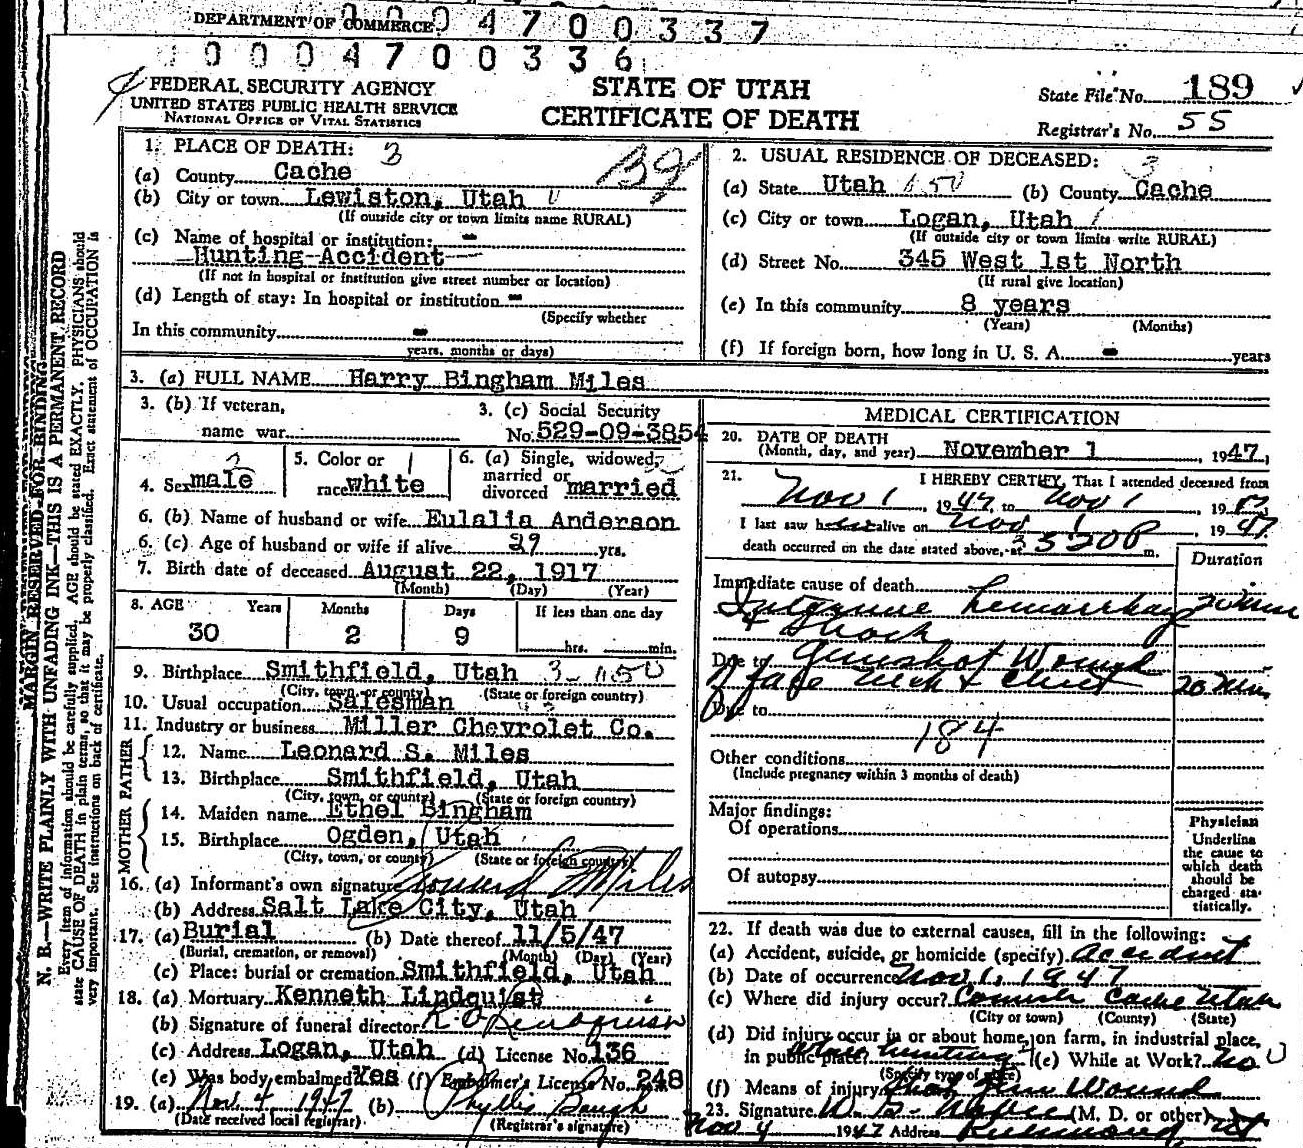 DEPARTMENT OF COMMERCE 0004700337
0004700336
FEDERAL SECURITY AGENCY
UNITED STATES PUBLIC HEALTH SERVICE
NATIONAL OFFICE OF VITAL STATISTICS
STATE OF UTAH
CERTIFICATE OF DEATH
State File No. 189
Registrar's No. 55
N. B.—WRITE PLAINLY WITH UNFADING INK—THIS IS A PERMANENT RECORD
MARGIN RESERVED FOR BINDING
Every item of information should be carefully supplied. AGE should be stated EXACTLY. PHYSICIANS should
state CAUSE OF DEATH in plain terms, so that it may be properly classified. Exact statement of OCCUPATION is
very important. See instructions on back of certificate.
1. PLACE OF DEATH: 3
(a) County Cache
(b) City or town Lewiston, Utah
(If outside city or town limits name RURAL)
(c) Name of hospital or institution: -
Hunting Accident
(If not in hospital or institution give street number or location)
(d) Length of stay: In hospital or institution -
(Specify whether
In this community -
years, months or days)
2. USUAL RESIDENCE OF DECEASED: 3
(a) State Utah (b) County Cache
(c) City or town Logan, Utah
(If outside city or town limits write RURAL)
(d) Street No. 345 West 1st North
(If rural give location)
(e) In this community 8 years
(Years) (Months)
(f) If foreign born, how long in U. S. A. - years
3. (a) FULL NAME Harry Bingham Miles
3. (b) If veteran,
name war
3. (c) Social Security
No. 529-09-3854
4. Sex male
5. Color or
race white
6. (a) Single, widowed,
married or
divorced married
6. (b) Name of husband or wife Eulalia Anderson
6. (c) Age of husband or wife if alive 29 yrs.
7. Birth date of deceased August 22, 1917
(Month) (Day) (Year)
8. AGE Years Months Days If less than one day
30 2 9 hrs. min.
9. Birthplace Smithfield, Utah
(City, town, or county) (State or foreign country)
10. Usual occupation Salesman
11. Industry or business Miller Chevrolet Co.
FATHER
12. Name Leonard S. Miles
13. Birthplace Smithfield, Utah
(City, town, or county) (State or foreign country)
MOTHER
14. Maiden name Ethel Bingham
15. Birthplace Ogden, Utah
(City, town, or county) (State or foreign country)
16. (a) Informant's own signature Leonard S Miles
(b) Address Salt Lake City, Utah
17. (a) Burial (b) Date thereof 11/5/47
(Burial, cremation, or removal) (Month) (Day) (Year)
(c) Place: burial or cremation Smithfield, Utah
18. (a) Mortuary Kenneth Lindquist
(b) Signature of funeral director K. O. Lindquist
(c) Address Logan, Utah (d) License No. 136
(e) Was body embalmed Yes (f) Embalmer's License No. 248
19. (a) Nov. 4, 1947 (b) Phyllis Baugh
(Date received local registrar) (Registrar's signature)
MEDICAL CERTIFICATION
20. DATE OF DEATH
(Month, day, and year) November 1, 1947
21. I HEREBY CERTIFY, That I attended deceased from
Nov 1, 1947 to Nov 1, 19
I last saw him alive on Nov 1 1947
death occurred on the date stated above, at m.
Duration
Immediate cause of death
hemorrhage 20 min
& Shock
Due to Gunshot Wound
of face neck & chest 20 min.
Due to
184
Other conditions
(Include pregnancy within 3 months of death)
Major findings:
Of operations
Of autopsy
Physician
Underline
the cause to
which death
should be
charged sta-
tistically.
22. If death was due to external causes, fill in the following:
(a) Accident, suicide, or homicide (specify) Accident
(b) Date of occurrence Nov 1, 1947
(c) Where did injury occur? Cornish Cache Utah
(City or town) (County) (State)
(d) Did injury occur in or about home, on farm, in industrial place,
in public place? hunting (e) While at Work? no
(Specify type of place)
(f) Means of injury Shot Gun Wound
23. Signature (M. D. or other)
Nov 4 1947 Address Richmond